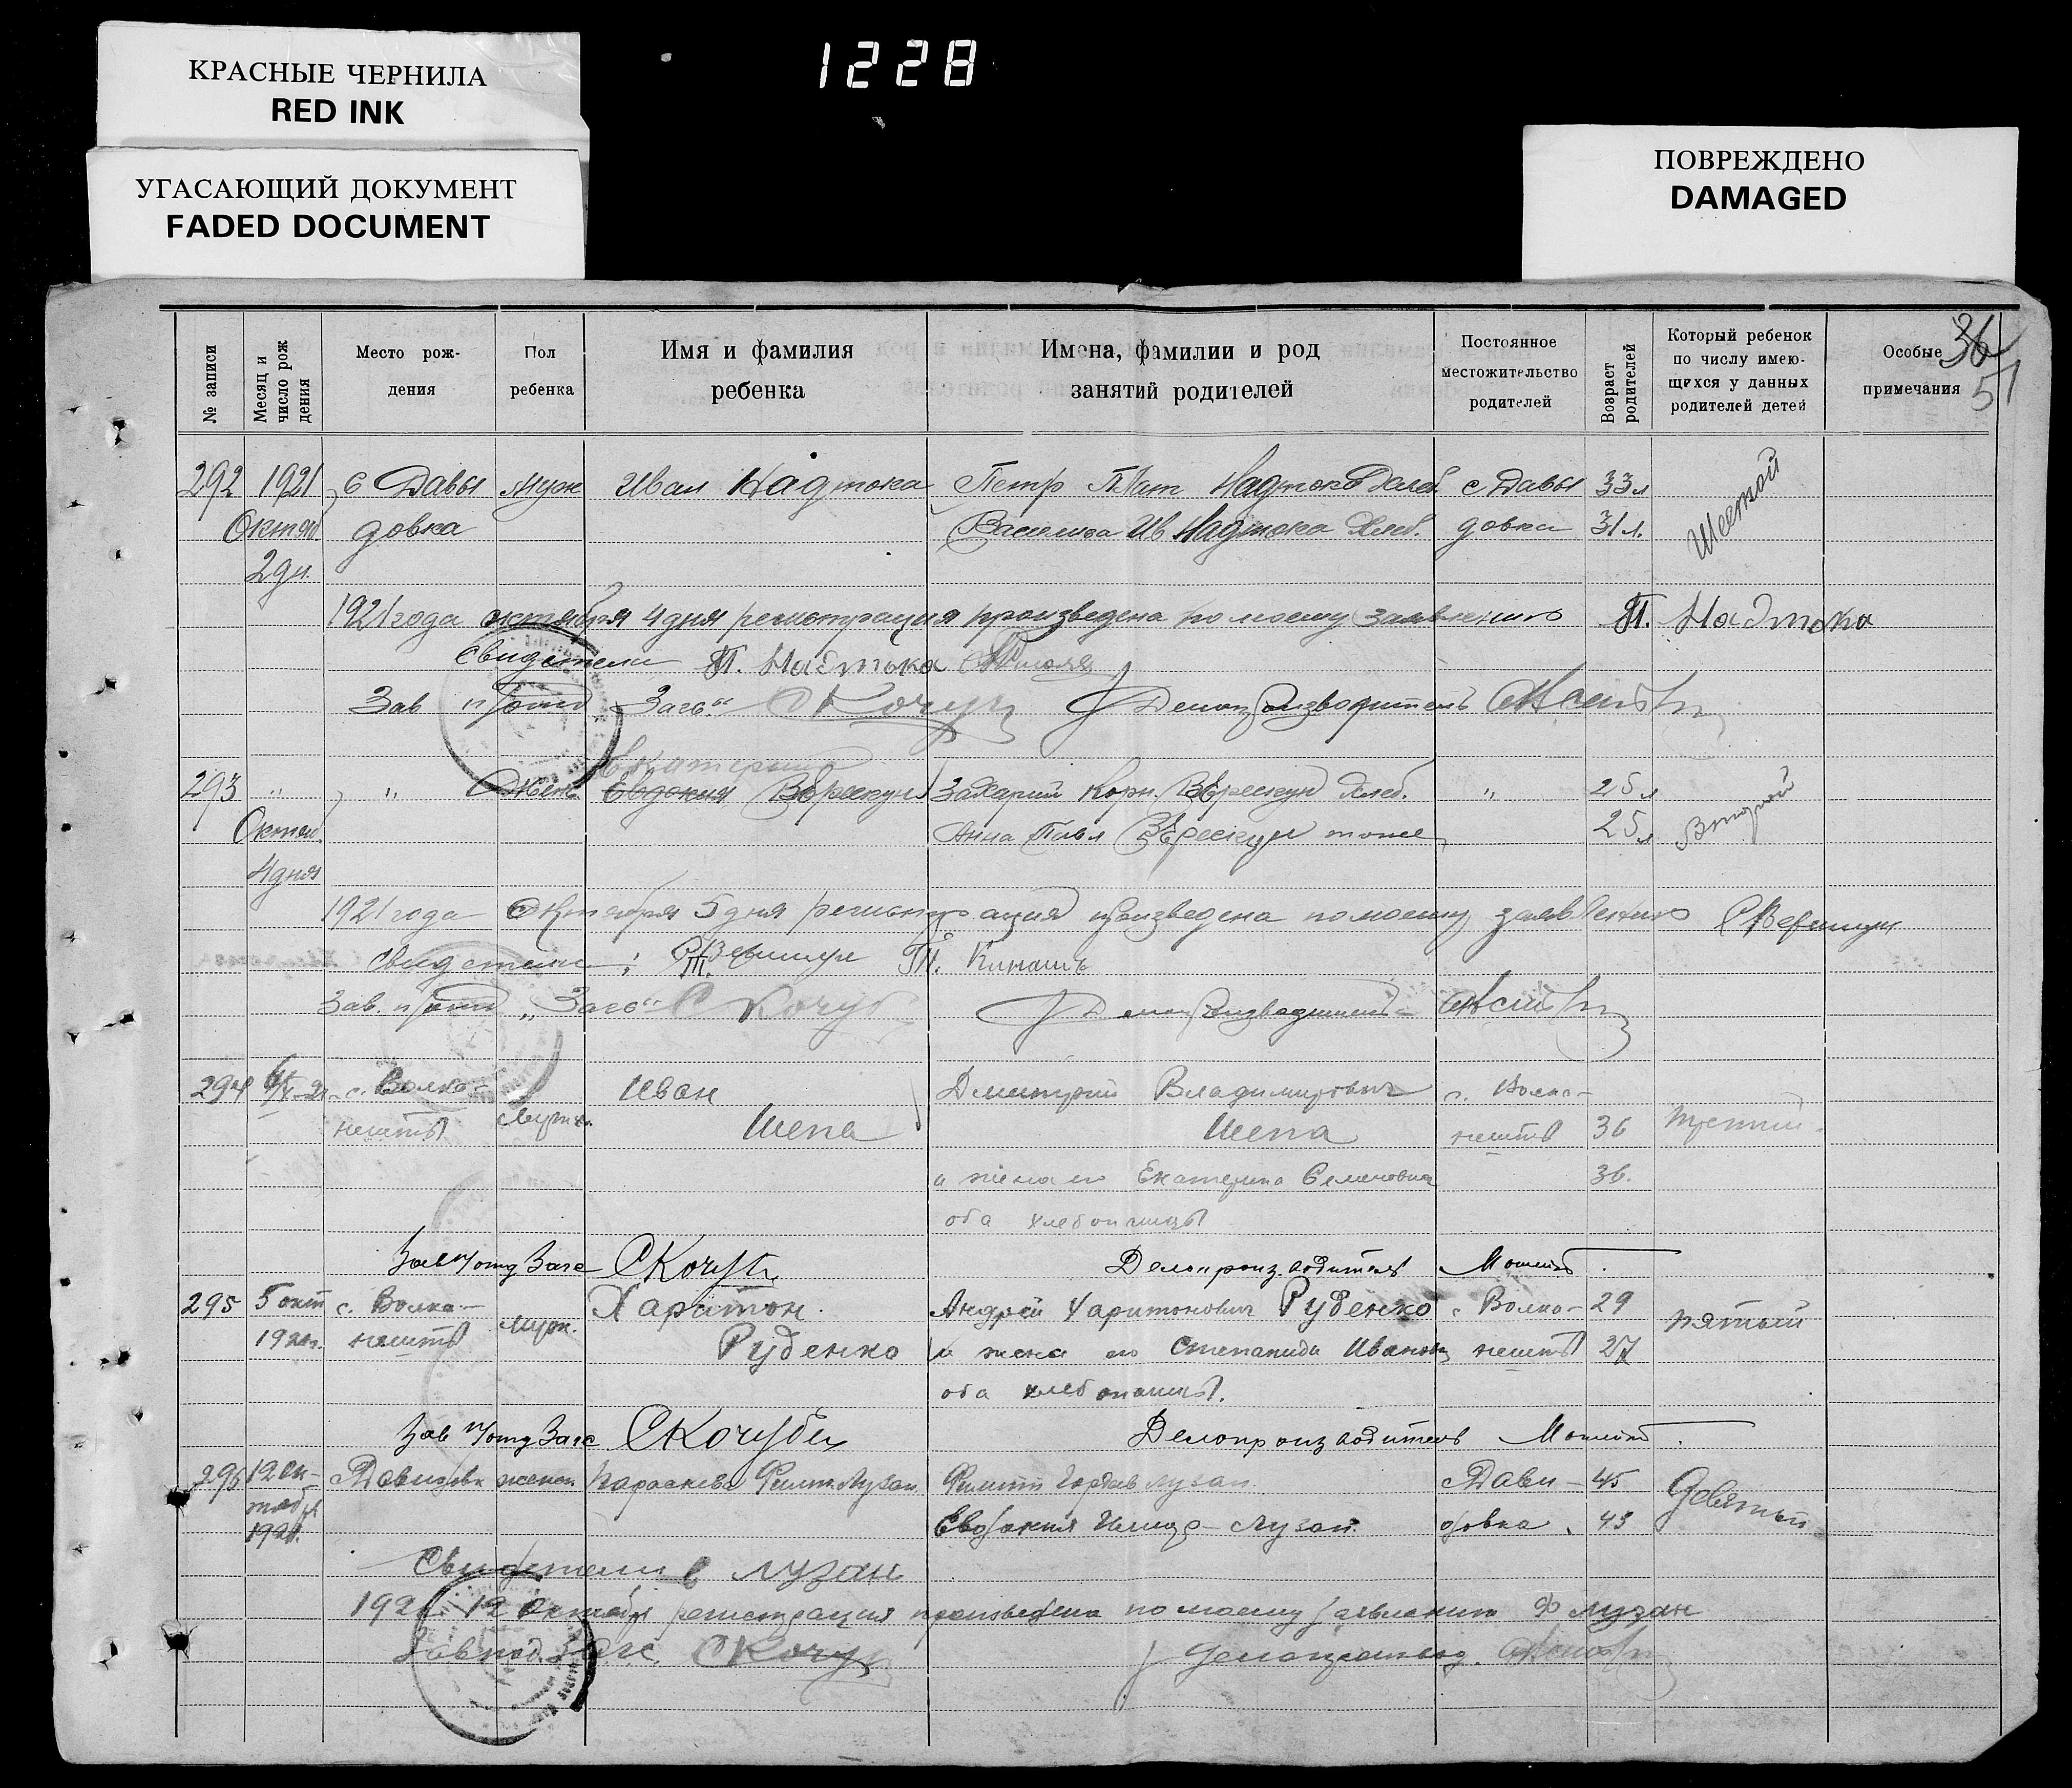 1228
КРАСНЫЕ ЧЕРНИЛА
RED INK
УГАСАЮЩИЙ ДОКУМЕНТ
FADED DOCUMENT
ПОВРЕЖДЕНО
DAMAGED
36
51
№ записи
Месяц и число рождения
Место рож-
дения
Пол
ребенка
Имя и фамилия
ребенка
Имена, фамилии и род
занятий родителей
Постоянное
местожительство
родителей
Возраст
родителей
Который ребенок
по числу имею-
щихся у данных
родителей детей
Особые
примечания
292 1921 с Давы муж Иван Надтока Петр Надтока хлеб. с Давы 33 л Шестой
Октяб довка Ив Надтока хлеб. довка 31 л.
2 дн.
1921 года октября 4 дня регистрация произведена по моему заявлению П. Надтока
Свидетели П. Надтока
Зав п/отд Загс" С Кочуб Делопроизводитель
Екатерина
293 " " Жен. Евдокия Верескун Захарий Корн. Верескун хлеб. " 25 л Второй
Октяб. Анна Павл Верескун тоже 25 л
4 дня
1921 года Октября 5 дня регистрация произведена по моему заявлению
Свидетели: П. Кинашь
Зав. п/отд „Загс" С Кочуб Делопроизводитель
294 с. Волко- Иван Дмитрий Владимирович с. Волко-
нешты мужс. Шепа Шепа нешты 36 третий
и жена его Екатерина Семеновна 36.
оба хлебопашцы
Зав п/отд Загс С Кочуб Делопроизводитель
295 5 окт с. Волко- муж. Харитон Андрей Харитонович Руденко с. Волко- 29 пятый
1921 г. нешты Руденко и жена его Степанида Иванов нешты 27
оба хлебопашцы.
Зав п/отд Загс С Кочубей Делопроизводитель
296 12 ок- Давидовк женск Параскева Филип Лузан. Филипп Лузан с Дави- 45 Девятый
тября Евдокия Лузан. довка 43
1921.
Свидетели Лузан
1921 12 Октября регистрация произведена по моему заявлению Ф Лузан
Зав под. Загс. С Кочуб Делопроизвод.